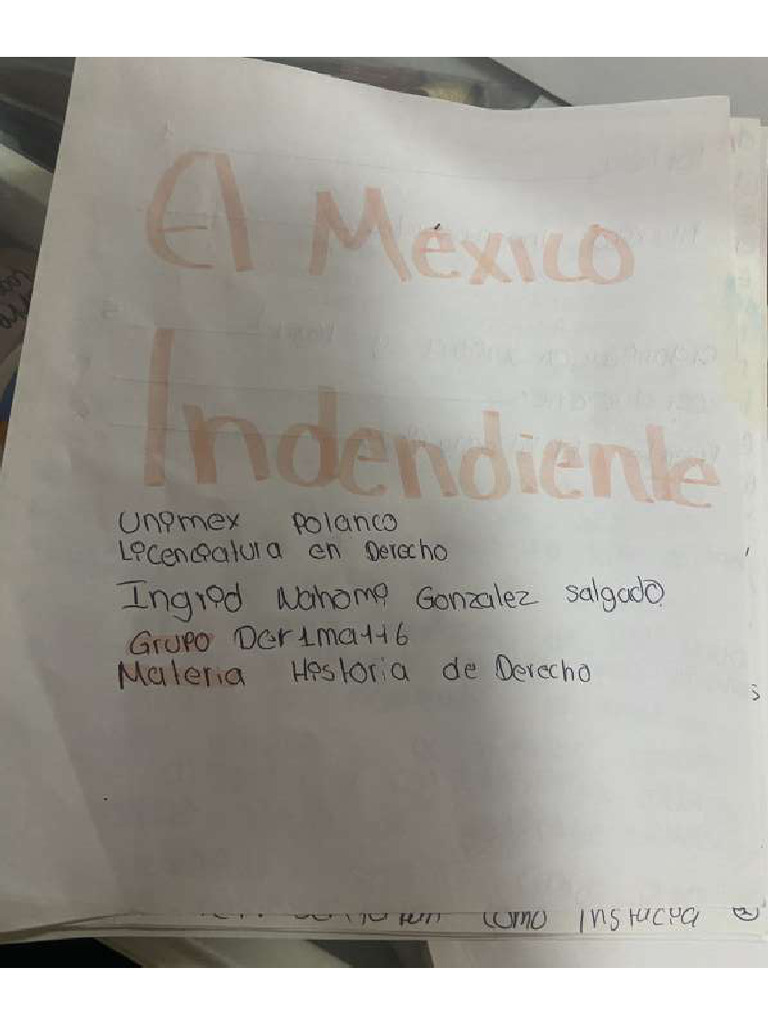 El México
Indendiente
Unimex Polanco
Licenciatura en Derecho
Ingrid Nahomi Gonzalez Salgado
Grupo Der1ma116
Materia Historia de Derecho
como Instacia